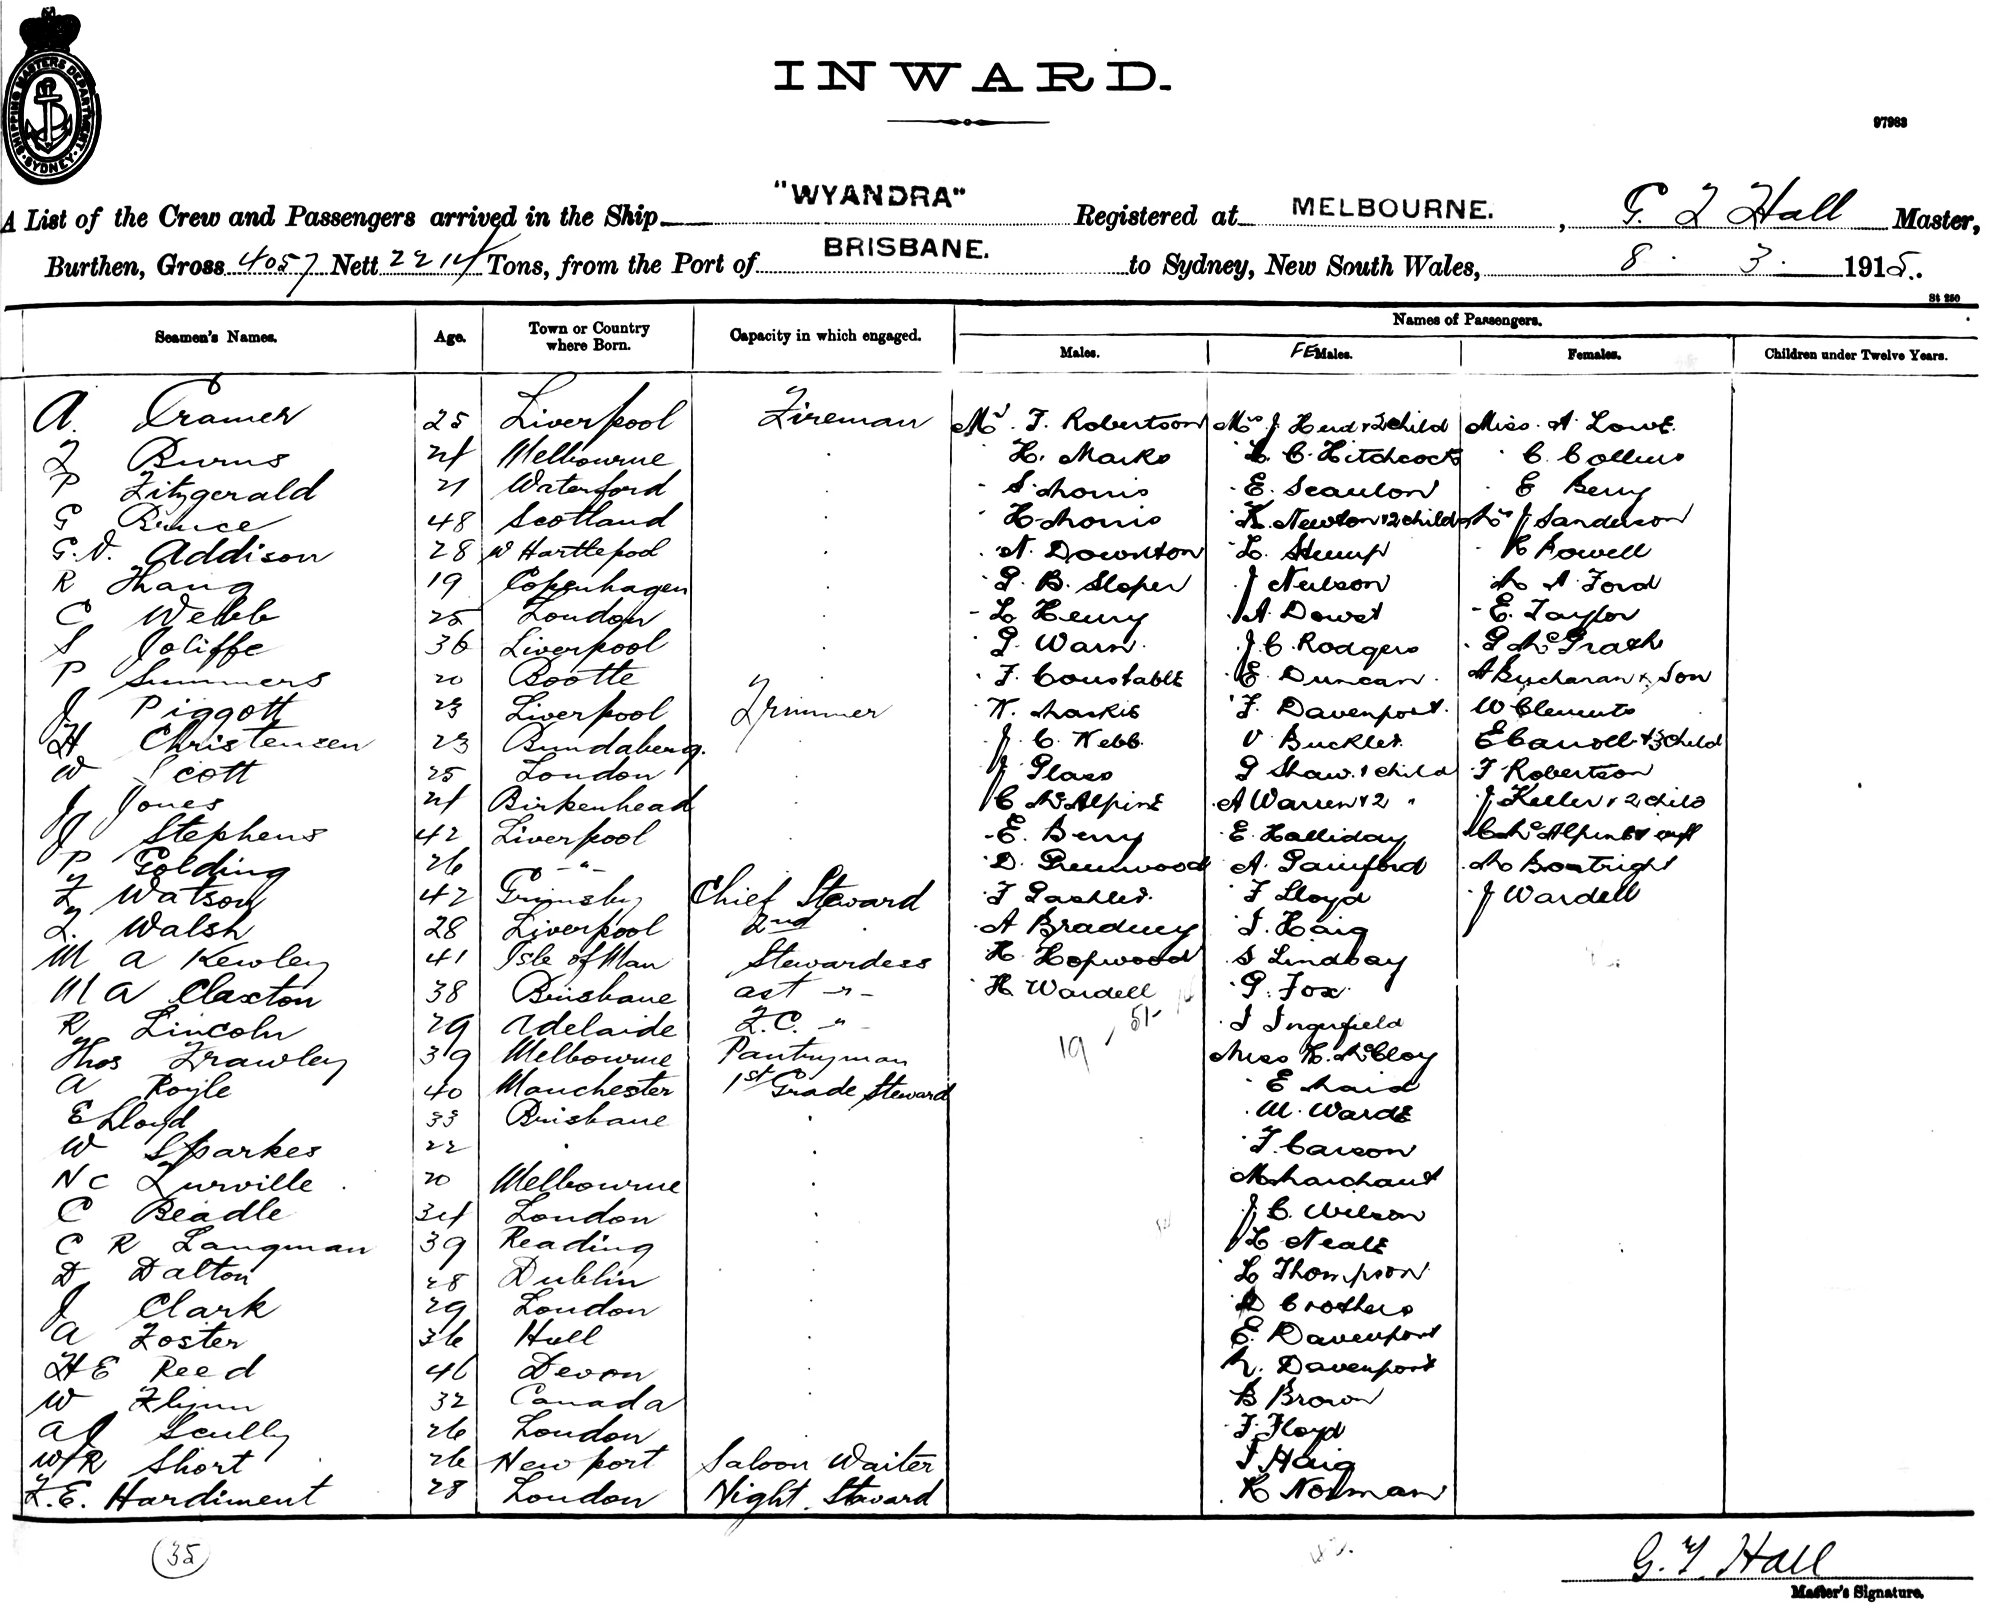 SHIPPING MASTERS DEPARTMENT
SYDNEY
INWARD.
97963
A List of the Crew and Passengers arrived in the Ship "WYANDRA" Registered at MELBOURNE. , G. T Hall Master,
Burthen, Gross 4057 Nett 2214 Tons, from the Port of BRISBANE. to Sydney, New South Wales, 8 . 3 . 1915.
St 250
Seamen's Names. Age. Town or Country where Born. Capacity in which engaged. Names of Passengers.
Males. FEMales. Females. Children under Twelve Years.
A. Cramer 25 Liverpool Fireman Mr. F. Robertson Mrs J Hud + 2 child Miss. A Lowe.
J Burns 24 Melbourne " H. Marks " L. C. Hitchcock " C. Collins
P Fitzgerald 21 Waterford " S. Morris " E. Scanlon " E Berry
G Bruce 48 Scotland " H Morris " K. Newton + 2 child Mrs J Sanderson
G. V. Addison 28 W Hartlepool " N. Downton " L. Stump " R Powell
R Thang 19 Copenhagen " G. B. Sloper " J Neilson " M A Ford
C Webb 25 London " L Henry " A Dowst " E. Taylor
S Joliffe 36 Liverpool " G. Warn " J. C. Rodgers " G McGrath
P Summers 20 Bootle " F. Constable " E. Duncan A Buchanan & Son
J Piggott 23 Liverpool Trimmer " F. Davenport W Clements
H Christensen 23 Bundaberg. " J. C. Webb " V Buckler E Carroll + 3 child
W Scott 25 London " J Glass G Shaw. 1 child F Robertson
J Jones 24 Birkenhead " C McAlpine A Warren + 2 " J Keller + 2 child
J Stephens 42 Liverpool " E. Berry " E. Halliday C McAlpine + inft
P Golding 26 -"- " D. Greenwood A. Gainford M Boatright
F Watson 42 Grimsby Chief Steward " F Pashler " F Lloyd J Wardell
J. Walsh 28 Liverpool 2nd " A Bradney " J. Haig
M A Kewley 41 Isle of Man Stewardess " H. Hopwood " S Lindsay
M A Claxton 38 Brisbane ast -"- " H Wardell " G. Fox
R Lincoln 29 Adelaide F.C. -"- " J Ingerfield
Thos Frawley 39 Melbourne Pantryman 19 - 51- Miss H. McCloy
A Royle 40 Manchester 1st Grade Steward " E Maid
E Lloyd 33 Brisbane " " M. Warde
W Sparkes 22 " " " F. Carson
N C Turville 20 Melbourne " M. Marchant
C Beadle 34 London " J. C. Wilson
C R Langman 39 Reading " L Neale
D Dalton 28 Dublin " L Thompson
J Clark 29 London " Crothers
A Foster 36 Hull " E. Davenport
H E Reed 46 Devon " Davenport
W Flynn 32 Canada " B Brown
A J Scully 26 London " F. Floyd
W R Short 26 Newport Saloon Waiter J Haig
F. E. Hardiment 28 London Night Steward " K Norman
(35)
G. T. Hall
Master's Signature.